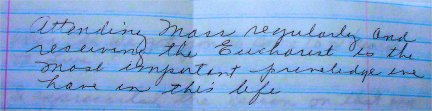 Attending Mass regularly and
receiving the Eucharist is the
most important priveledge we
have in this life